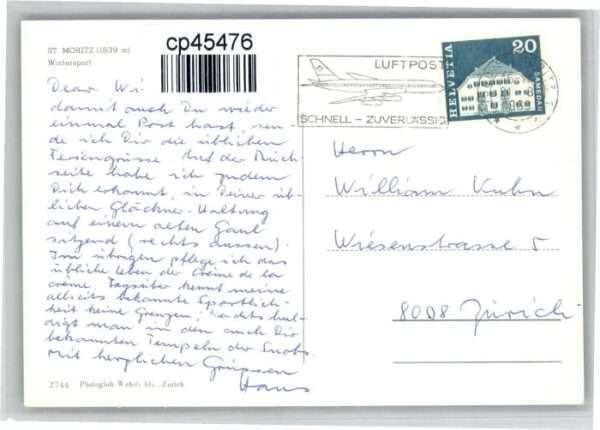 cp45476
ST. MORITZ (1839 m)
Wintersport
LUFTPOST
SCHNELL – ZUVERLÄSSIG
HELVETIA
20
SAMEDAN
Dear Wi
damit auch Du wieder
einmal Post hast, sen-
de ich Dir die üblichen
Feriengrüsse. Auf der Rück-
seite habe ich zudem
Dich erkannt, in Deiner üb-
lichen Glöckner-Haltung
auf einem alten Gaul
sitzend (rechts aussen).
Im übrigen pflege ich das
übliche Leben der Crème de la
crème. Tagsüber kennt meine
allseits bekannte Sportlich-
keit keine Grenzen. Nachts hul-
digt man in den auch Dir
bekannten Tempeln der Snobs.
Mit herzlichen Grüssen
Hans
Herrn
William Kuhn
Wiesenstrasse 5
8008 Zürich
2744 Photoglob-Wehrli AG., Zürich